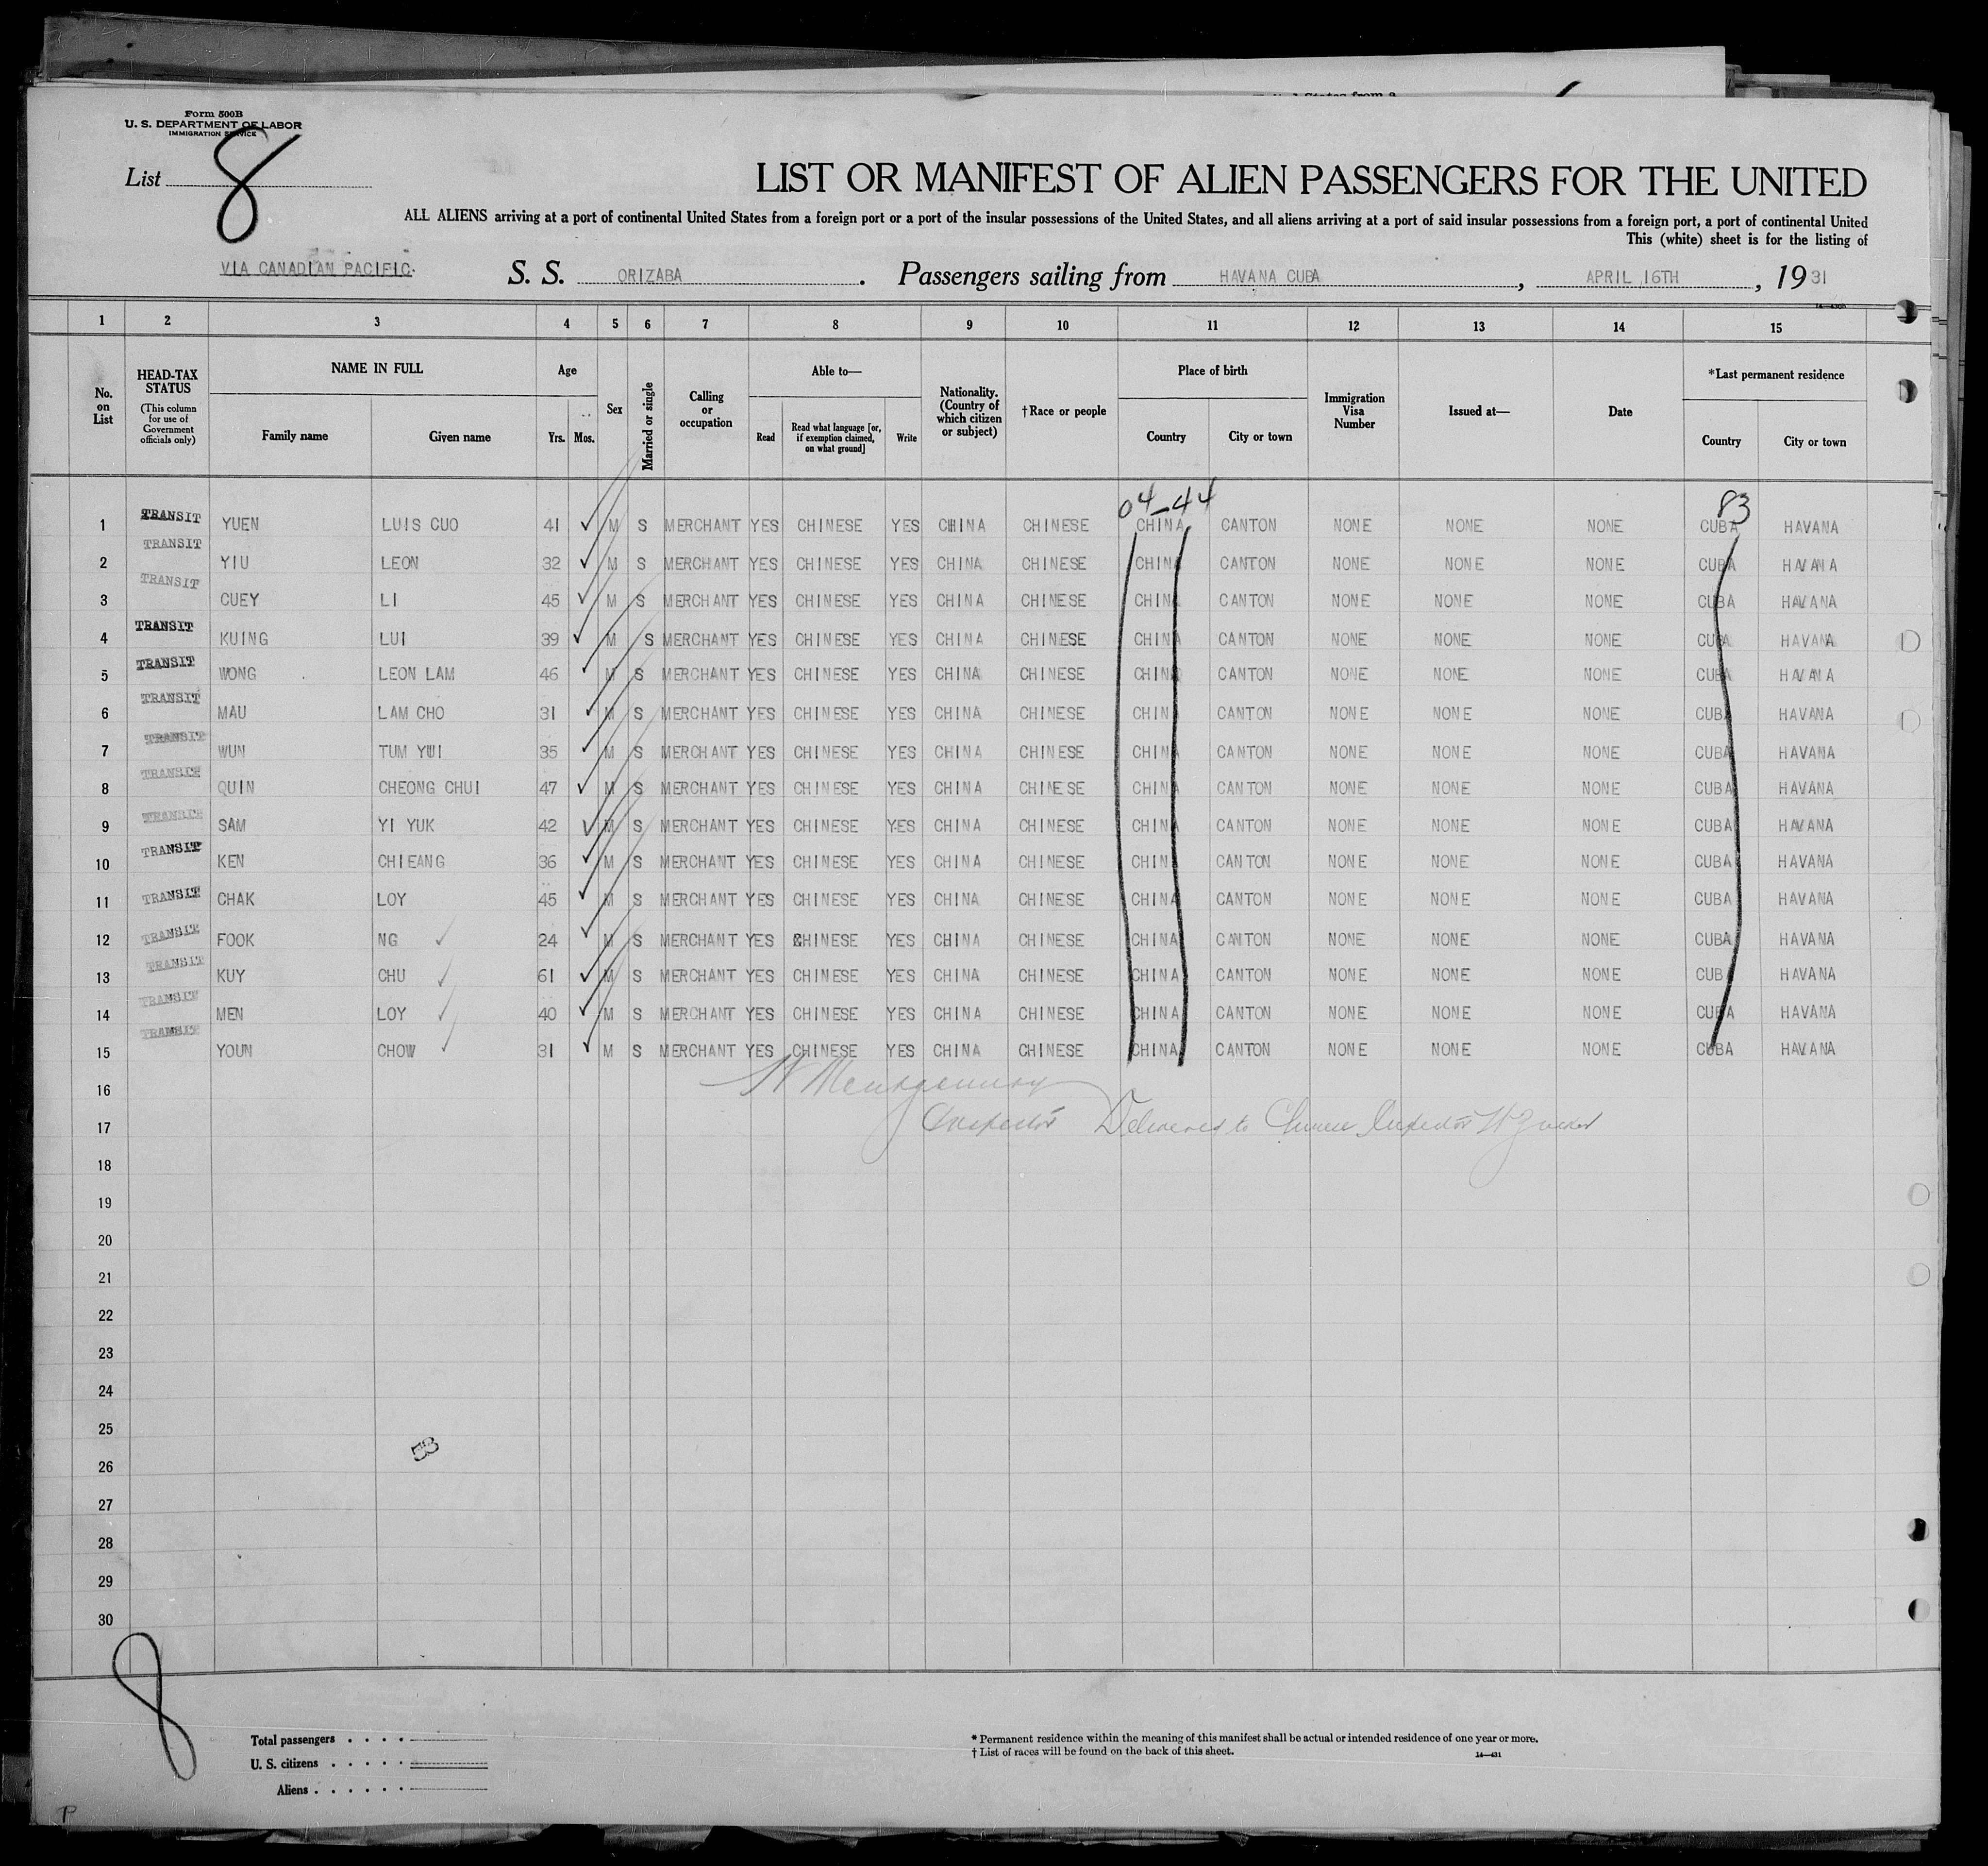 Form 500B
U. S. DEPARTMENT OF LABOR
IMMIGRATION SERVICE
List 8
LIST OR MANIFEST OF ALIEN PASSENGERS FOR THE UNITED
ALL ALIENS arriving at a port of continental United States from a foreign port or a port of the insular possessions of the United States, and all aliens arriving at a port of said insular possessions from a foreign port, a port of continental United
This (white) sheet is for the listing of
VIA CANADIAN PACIFIC. S. S. ORIZABA. Passengers sailing from HAVANA CUBA, APRIL 16TH, 1931
1 2 3 4 5 6 7 8 9 10 11 12 13 14 15
No. on List
HEAD-TAX STATUS
(This column for use of Government officials only)
NAME IN FULL
Family name
Given name
Age
Yrs.
Mos.
Sex
Married or single
Calling or occupation
Able to—
Read
Read what language [or, if exemption claimed, on what ground]
Write
Nationality. (Country of which citizen or subject)
†Race or people
Place of birth
Country
City or town
Immigration Visa Number
Issued at—
Date
*Last permanent residence
Country
City or town
04-44 83
1 TRANSIT YUEN LUIS CUO 41 ✓ M S MERCHANT YES CHINESE YES CHINA CHINESE CHINA CANTON NONE NONE NONE CUBA HAVANA
2 TRANSIT YIU LEON 32 ✓ M S MERCHANT YES CHINESE YES CHINA CHINESE CHINA CANTON NONE NONE NONE CUBA HAVANA
3 TRANSIT CUEY LI 45 ✓ M S MERCHANT YES CHINESE YES CHINA CHINESE CHINA CANTON NONE NONE NONE CUBA HAVANA
4 TRANSIT KUING LUI 39 ✓ M S MERCHANT YES CHINESE YES CHINA CHINESE CHINA CANTON NONE NONE NONE CUBA HAVANA
5 TRANSIT WONG LEON LAM 46 ✓ M S MERCHANT YES CHINESE YES CHINA CHINESE CHINA CANTON NONE NONE NONE CUBA HAVANA
6 TRANSIT MAU LAM CHO 31 ✓ M S MERCHANT YES CHINESE YES CHINA CHINESE CHINA CANTON NONE NONE NONE CUBA HAVANA
7 TRANSIT WUN TUM YWI 35 ✓ M S MERCHANT YES CHINESE YES CHINA CHINESE CHINA CANTON NONE NONE NONE CUBA HAVANA
8 TRANSIT QUIN CHEONG CHUI 47 ✓ M S MERCHANT YES CHINESE YES CHINA CHINESE CHINA CANTON NONE NONE NONE CUBA HAVANA
9 TRANSIT SAM YI YUK 42 ✓ M S MERCHANT YES CHINESE YES CHINA CHINESE CHINA CANTON NONE NONE NONE CUBA HAVANA
10 TRANSIT KEN CHIEANG 36 ✓ M S MERCHANT YES CHINESE YES CHINA CHINESE CHINA CANTON NONE NONE NONE CUBA HAVANA
11 TRANSIT CHAK LOY 45 ✓ M S MERCHANT YES CHINESE YES CHINA CHINESE CHINA CANTON NONE NONE NONE CUBA HAVANA
12 TRANSIT FOOK NG ✓ 24 ✓ M S MERCHANT YES CHINESE YES CHINA CHINESE CHINA CANTON NONE NONE NONE CUBA HAVANA
13 TRANSIT KUY CHU ✓ 61 ✓ M S MERCHANT YES CHINESE YES CHINA CHINESE CHINA CANTON NONE NONE NONE CUBA HAVANA
14 TRANSIT MEN LOY ✓ 40 ✓ M S MERCHANT YES CHINESE YES CHINA CHINESE CHINA CANTON NONE NONE NONE CUBA HAVANA
15 TRANSIT YOUN CHOW ✓ 31 ✓ M S MERCHANT YES CHINESE YES CHINA CHINESE CHINA CANTON NONE NONE NONE CUBA HAVANA
16 Montgomery
17 Inspector Delivered to Chinese Inspector
18
19
20
21
22
23
24
25
53
26
27
28
29
30
8
Total passengers . . . .
U. S. citizens . . . . .
Aliens . . . . . .
* Permanent residence within the meaning of this manifest shall be actual or intended residence of one year or more.
† List of races will be found on the back of this sheet. 14—431
P